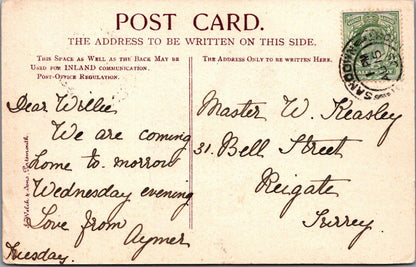 POST CARD.
THE ADDRESS TO BE WRITTEN ON THIS SIDE.
THIS SPACE AS WELL AS THE BACK MAY BE
USED FOR INLAND COMMUNICATION.
POST-OFFICE REGULATION.
THE ADDRESS ONLY TO BE WRITTEN HERE.
SANDOWN
Dear Willie
We are coming
home to-morrow
Wednesday evening
Love from
Aymer
Tuesday.
Welch & Sons, Portsmouth.
Master W. Keasley
31. Bell Street
Reigate
Surrey.